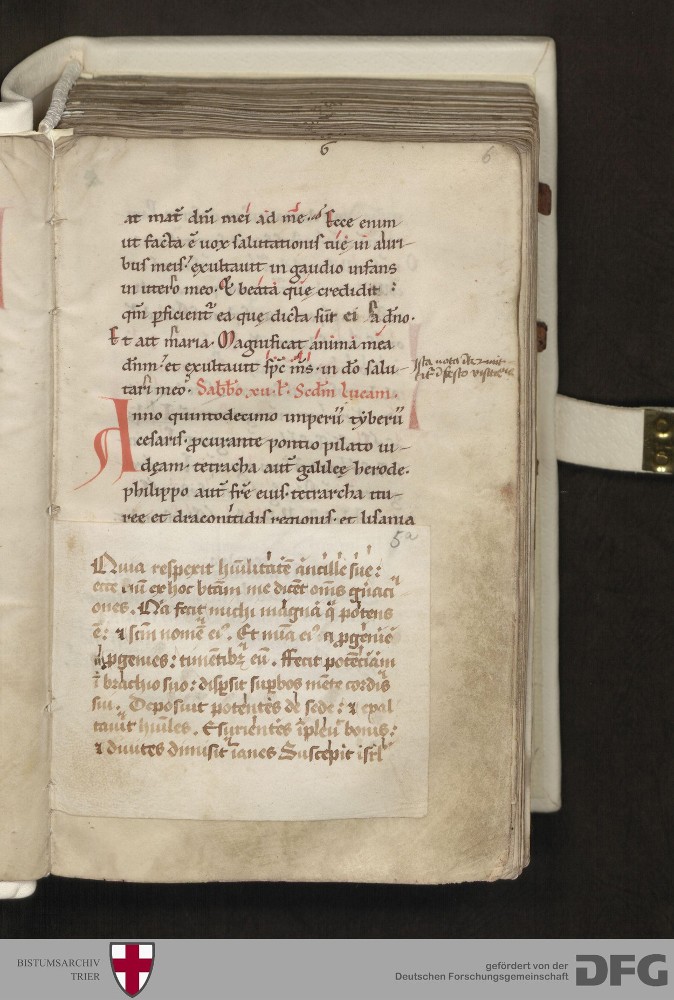 6
6
at mat̄ dn̄i mei ad me. Ecce enim
ut facta ē uox salutationis tuę in auri-
bus meis. exultauit in gaudio infans
in utero meo. Et beata quę credidit
qm̄ ꝑficient̄ ea quę dicta sūt ei a dn̄o.
Et ait maria. Magnificat anima mea
dn̄m. et exultauit sp̄c m̄s. in dō salu-
tari meo. Sabb̄o .xv. Scdm̄ lucam.
Anno quintodecimo imperii tyberii
cesaris. ꝓcurante pontio pilato iu-
dęam. tetracha aut̄ galileę herode.
philippo aut̄ fr̄e eius. tetrarcha itu-
ree et draconitidis regionis. et lisania
Ista nota
festo
5a
Quia respexit hūilitatē ancille sue:
ecce ex hoc bt̄am me dicēt om̄s gn̄aci
ones. Q̇a fecit michi magna q̇ potens
ē: ⁊ scm̄ nomē eiꝰ. Et mīa eiꝰ a ꝓgenie
ī ꝓgenies: timentibꝫ eū. Ffecit potēciam
ī brachio suo: disꝑsit suꝑbos mēte cordis
sui. Deposuit potentes de sede: ⁊ exal
tauit hūiles. Esurientes īpleuͭ bonis:
⁊ diuites dimisit īanes Suscepit isrl̄
BISTUMSARCHIV
TRIER
gefördert von der
Deutschen Forschungsgemeinschaft
DFG